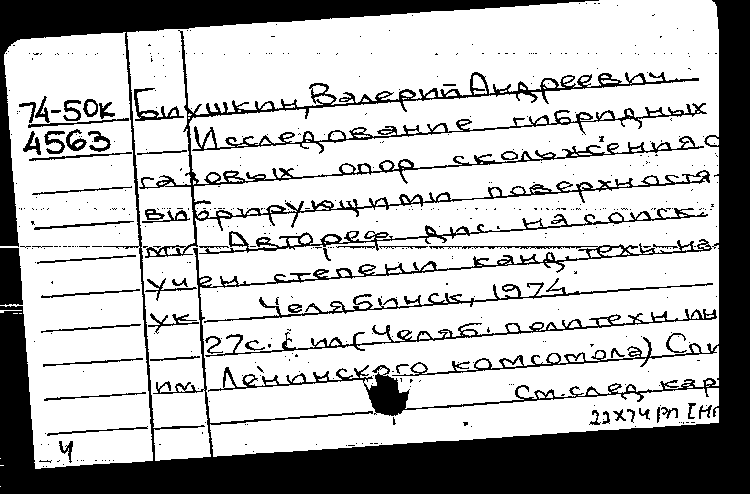 74-50к Блушкин, Валерий Андреевич.
4563 Исследование гибридных
газовых опор скольжения с
вибрирующими поверхностя-
ми. Автореф. дис. на соиск.
учен. степени канд. техн. на-
ук. Челябинск, 1974.
27с. с ил (Челяб. политехн. ин
им. Ленинского комсомола) Спи
См. след. кар
22X74 РП [НП
Ч